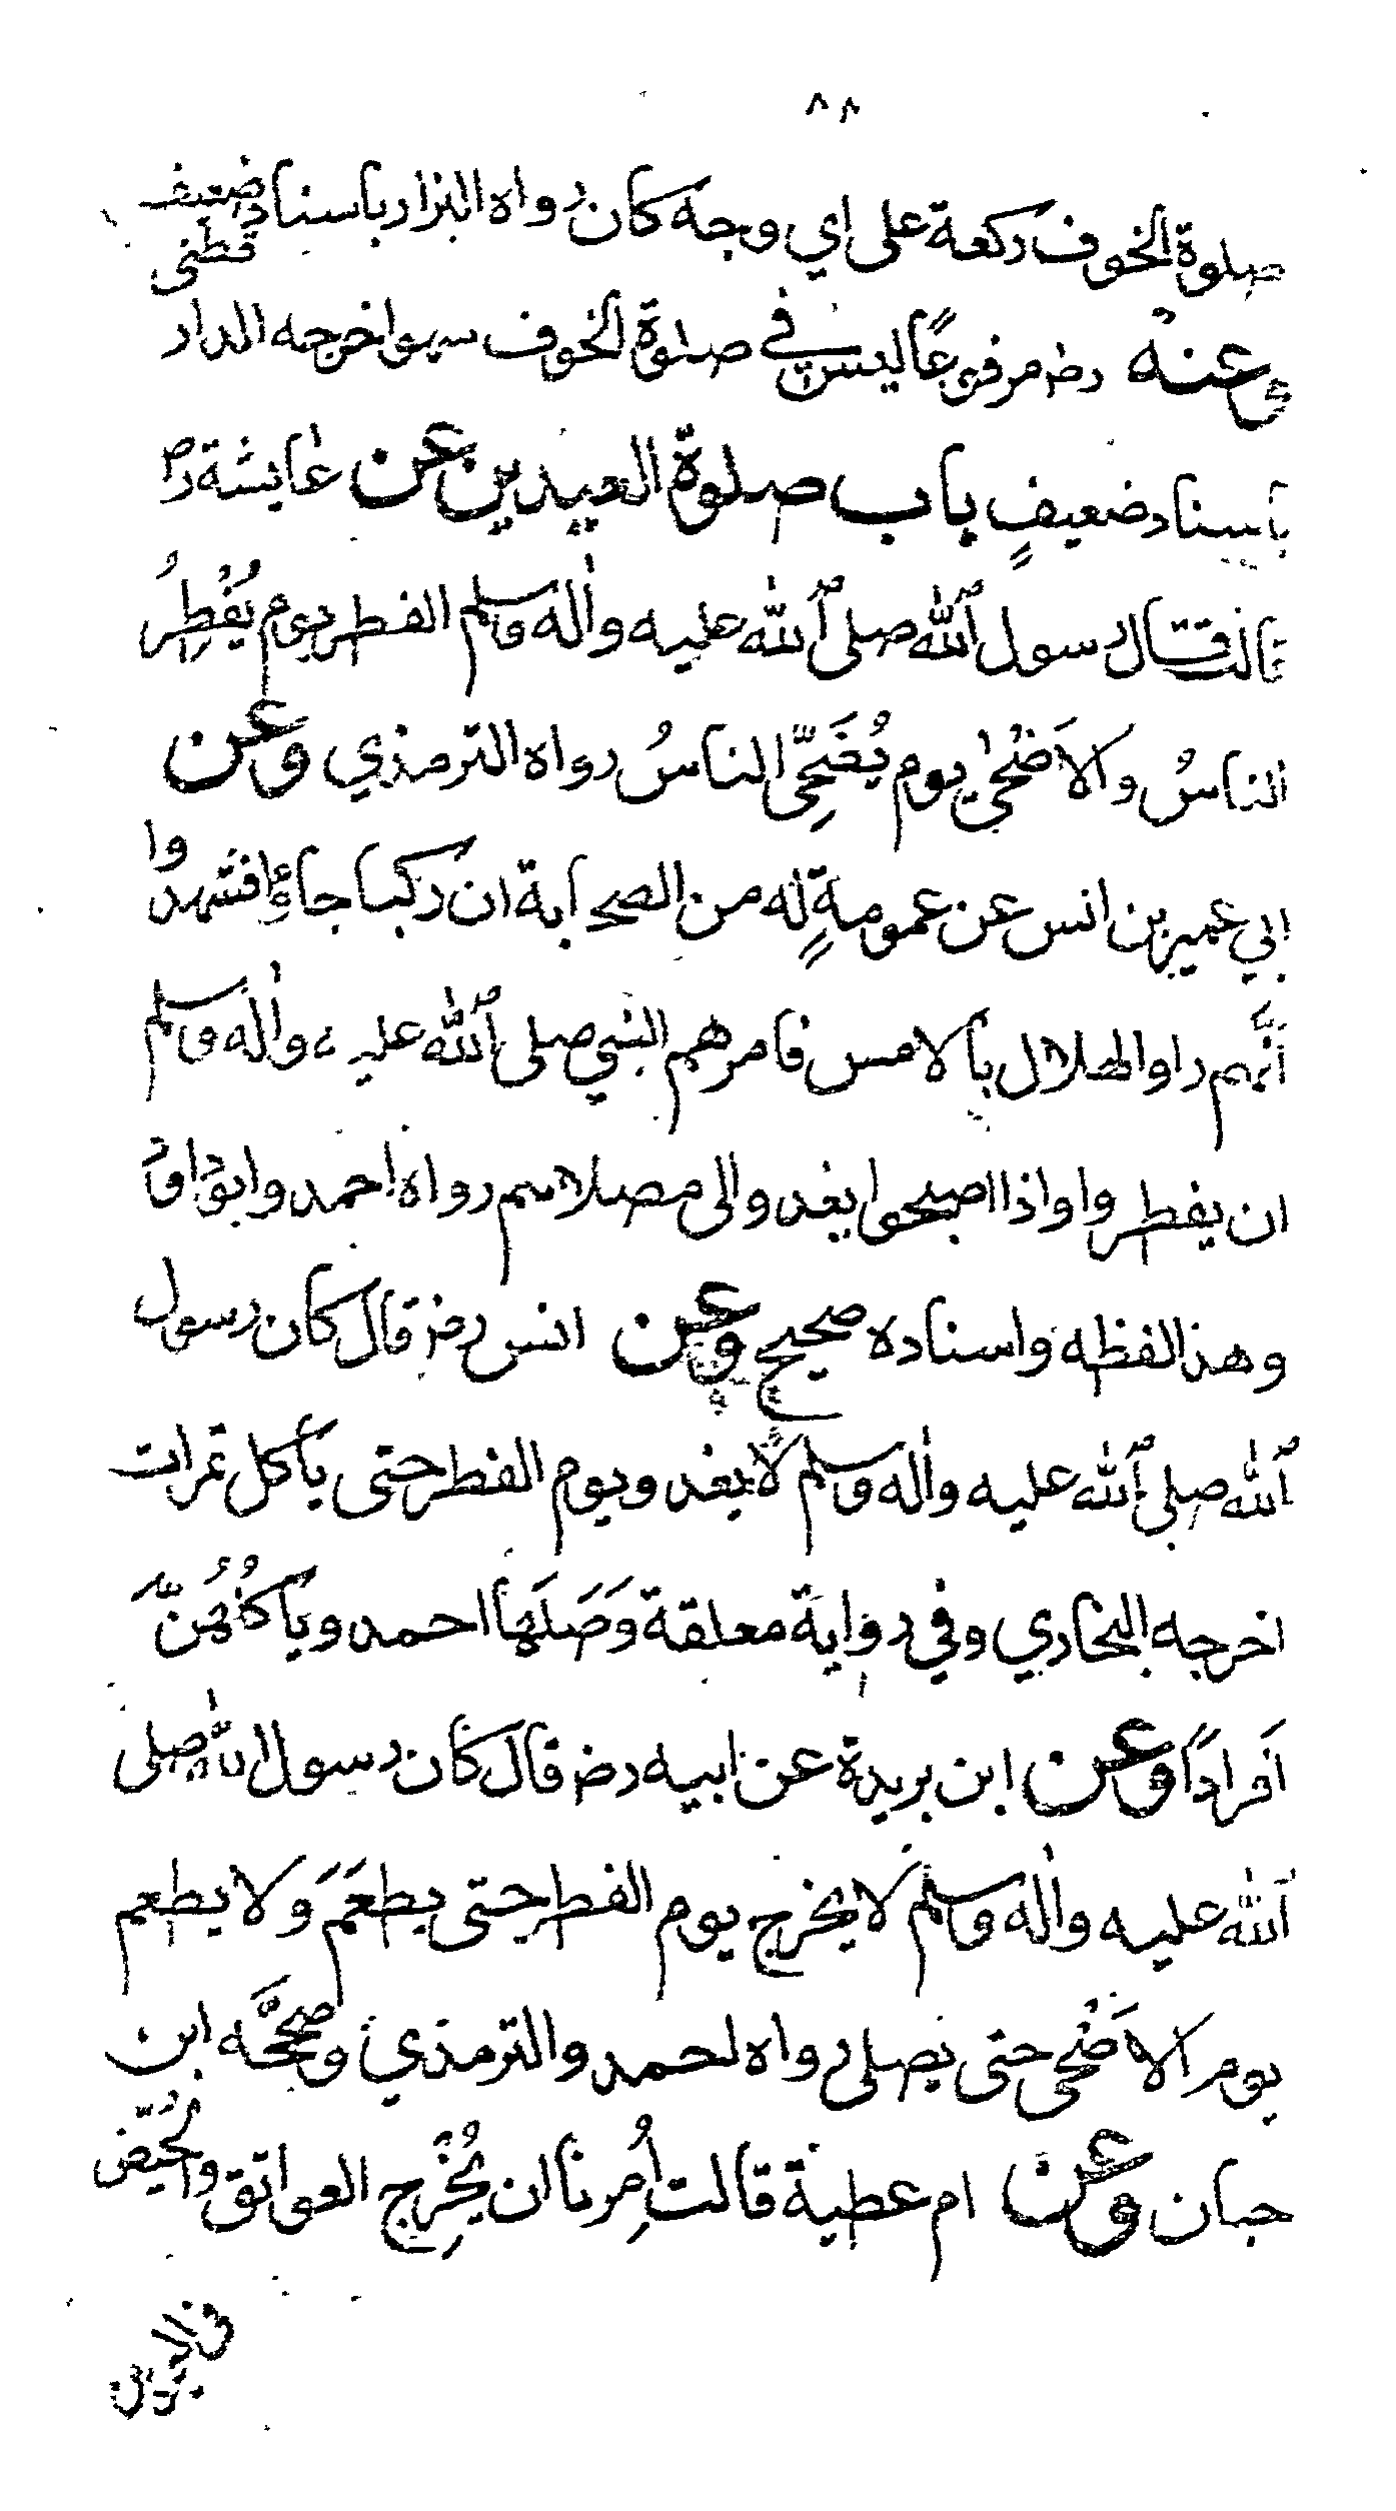 ٨٨
صلوة الخوف ركعة على اي وجه كان رواه البزار باسناد ضعيف
وعنه رض مرفوعًا ليس في صلوة الخوف سهو اخرجه الدار قطني
باسناد ضعيفٍ باب صلوة العيدين عن عايشة رض
قالت قال رسول الله صلى الله عليه واله وسلم الفطر يوم يُفْطِرُ
الناسُ والاَضْحٰى يوم يُضَحِّى الناسُ رواه الترمذي وعن
ابي عمير بن انس عن عمومةٍ له من الصحابة ان ركبا جاؤا فشهدوا
انَّهم راوا الهلال بالامس فامرهم النبي صلى الله عليه واله وسلم
ان يفطروا واذا اصبحوا يغدوا الى مصلاهم رواه احمد وابو داود
وهذا لفظه واسناده صحيح وعن انس رض قال كان رسول
الله صلى الله عليه واله وسلم لا يغدو يوم الفطر حتى ياكل تمرات
اخرجه البخاري وفي رواية معلقة وَصَلَها احمد وياكلُهُنَّ
اَفرادًا وعن ابن بريدة عن ابيه رض قال كان رسول الله صلى
الله عليه واله وسلم لا يخرج يوم الفطر حتى يطعَمَ وَلا يطعم
يوم الاَضْحى حتى يصلى رواه احمد والترمذي وصححَّه ابن
حبان وعن ام عطية قالت اُمِرنا ان نُخْرِج العواتق والحُيَّض
في العيدين